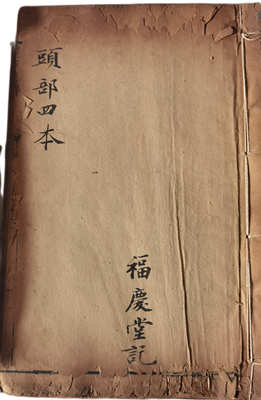 頭部四本
福慶堂記